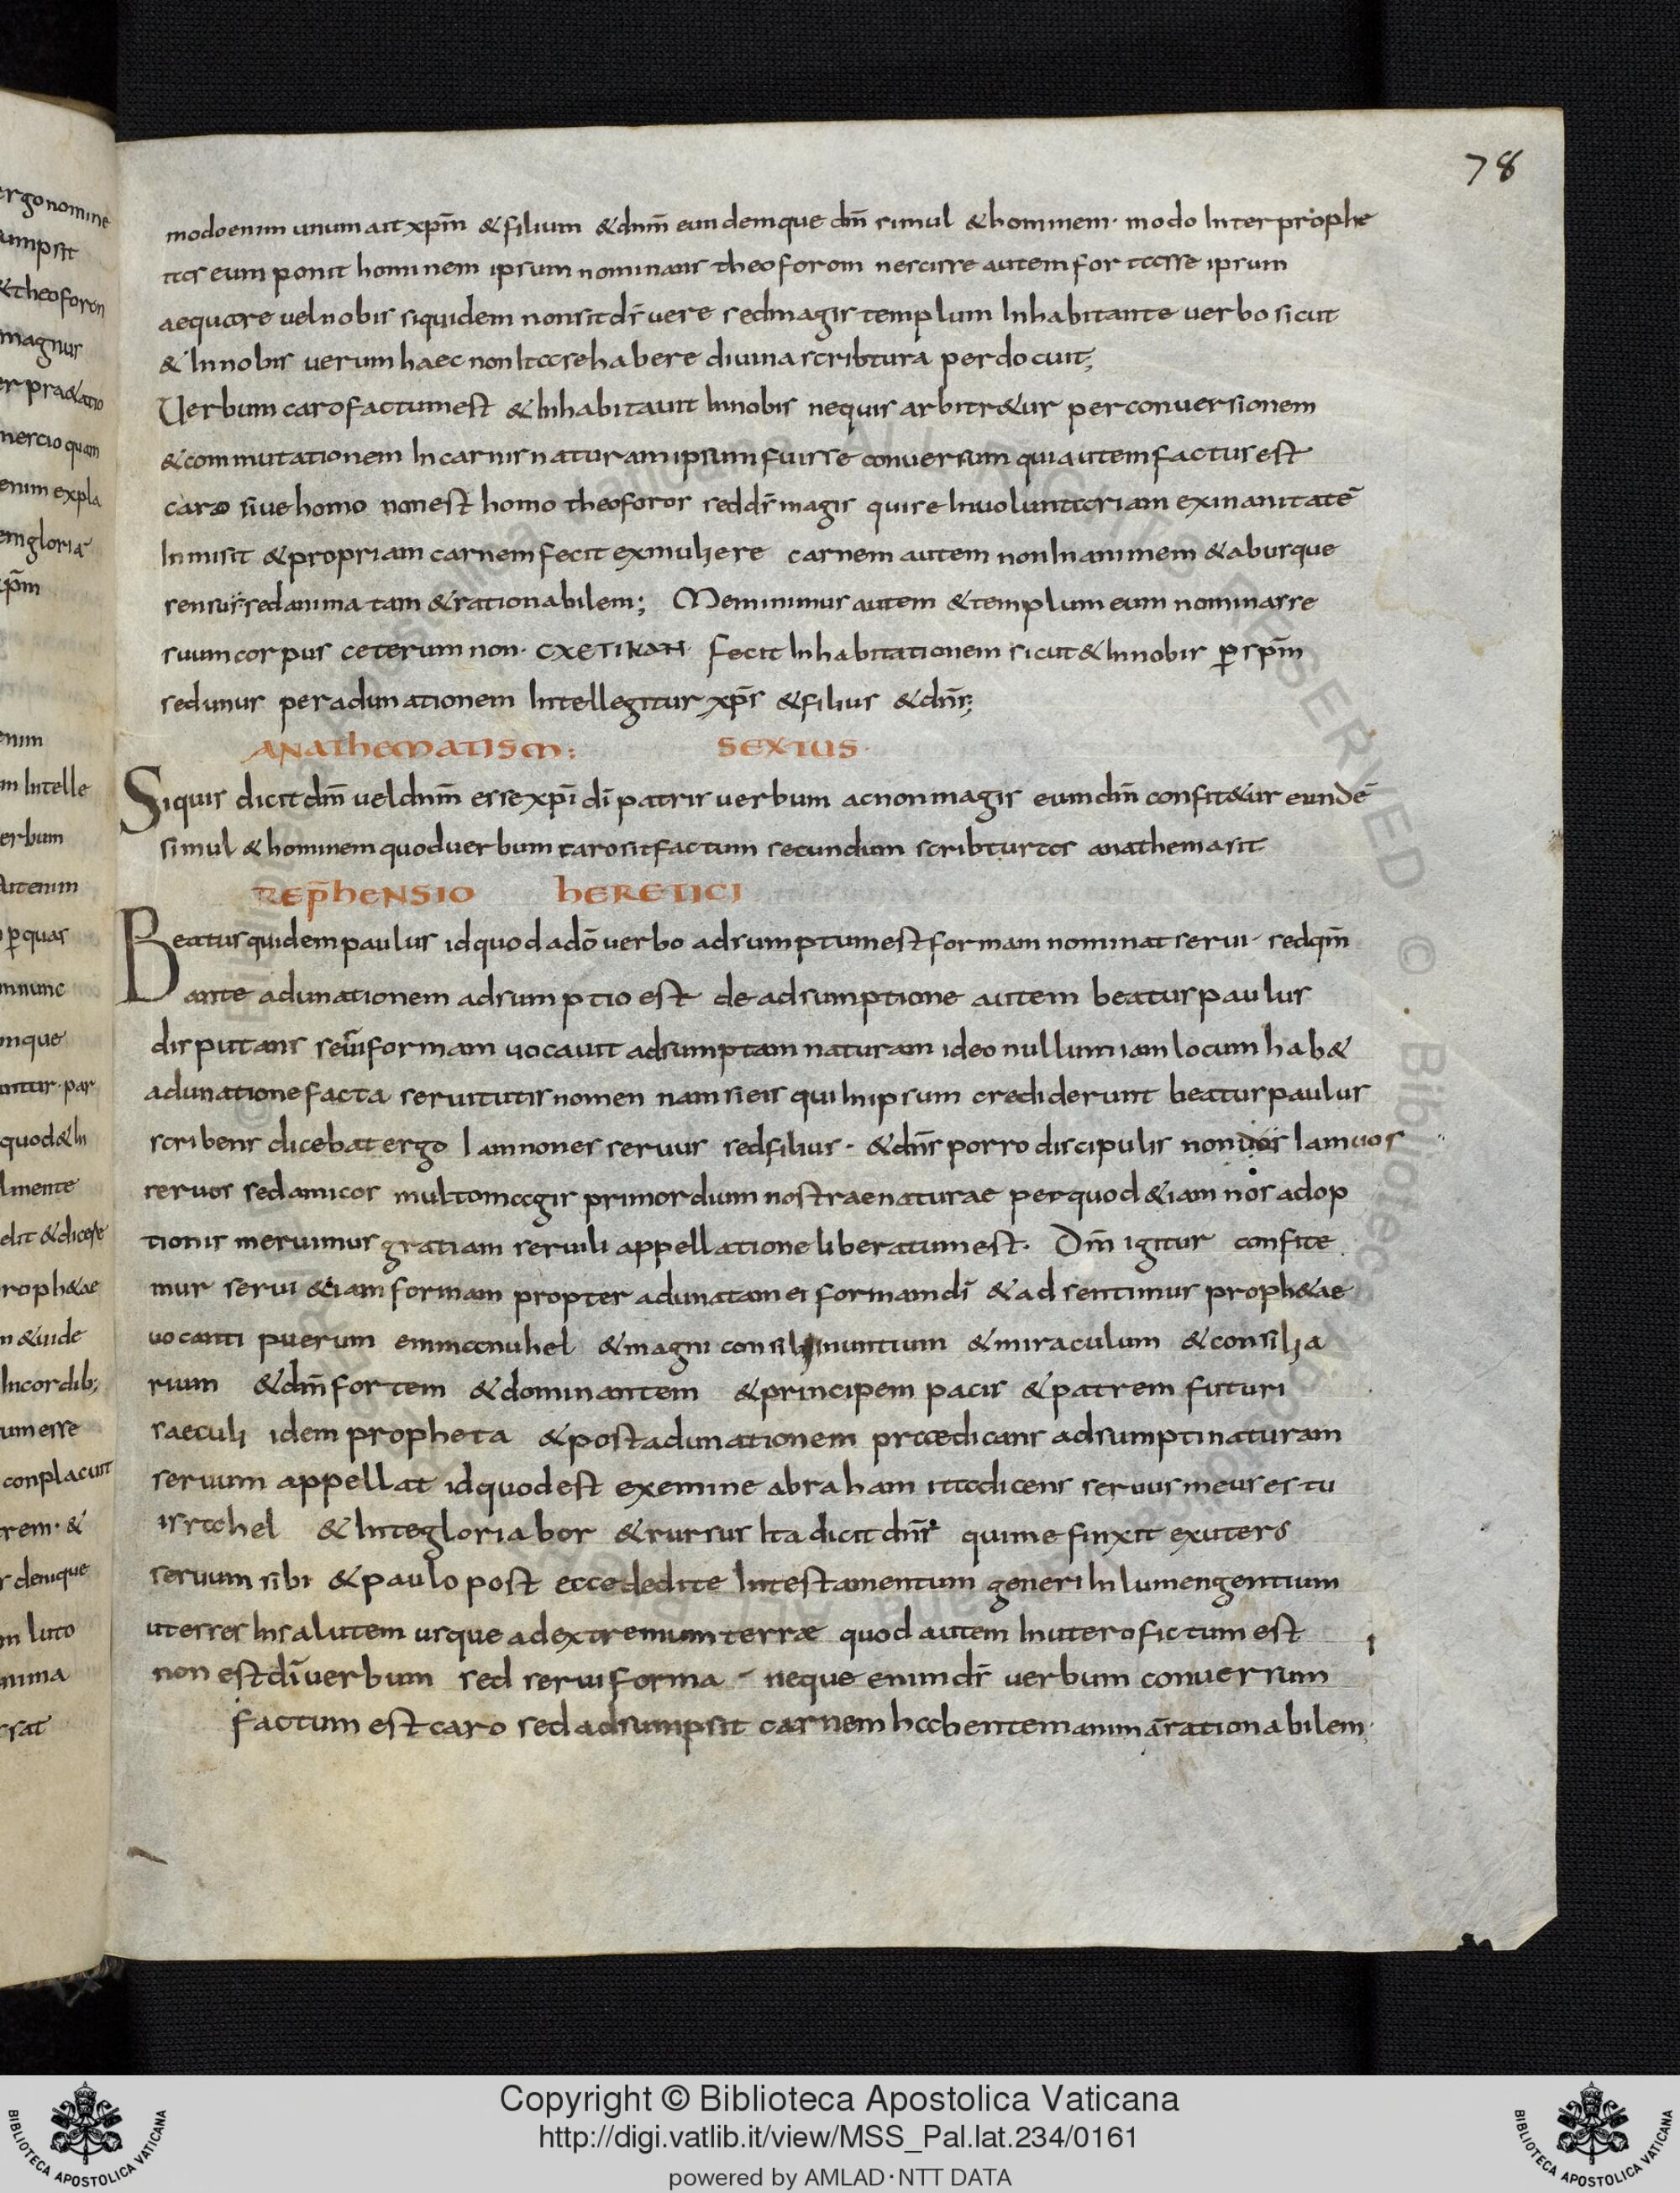 78
modo enim unum ait xp̄m & filium & dnm̄ eundemque dm̄ simul & hominem· modo Inter prophe
tas eum ponit hominem ipsum nominans theoforom nescisse autem fortasse ipsum
aequare uel nobis siquidem non sit dī uere sed magis templum Inhabitante uerbo sicut
& In nobis uerum haec non Ita se habere diuina scribtura perdocuit;
Uerbum caro factum est & Inhabitauit In nobis nequis arbitr&ur per conuersionem
& commutationem In carnis naturam ipsum fuisse conuersum qui autem factus est
caro siue homo non est homo theoforos sed ds̄ magis qui se In uoluntariam exinanitatē
Inmisit & propriam carnem fecit ex muliere carnem autem non Inanimem & absque
sensu: sed animatam & rationabilem; Meminimus autem & templum eum nominasse
suum corpus ceterum non· CXETIKAN· fecit Inhabitationem sicut & In nobis p̄ sp̄m
sed unus per adunationem Intellegitur xp̄s & filius & dns̄;
ANATHEMATISM: SEXTUS·
Siquis dicit dm̄ uel dnm̄ esse xp̄i dī patris uerbum ac non magis eum dm̄ confit&ur eundē
simul & hominem quod uerbum caro sit factum secundum scribturas anathema sit
REP̄HENSIO HERETICI
Beatus quidem paulus id quod a dō uerbo adsumptum est formam nominat serui· sed qm̄
ante adunationem adsumptio est de adsumptione autem beatus paulus
disputans serui formam uocauit adsumptam naturam ideo nullum iam locum hab&
adunatione facta seruitutis nomen nam si eis qui In ipsum crediderunt beatus paulus
scribens dicebat ergo Iam non es seruus sed filius· & dns̄ porro discipulis non uos Iam uos
seruos sed amicos multo magis primordium nostrae naturae per quod &iam nos adop
tionis meruimus gratiam seruili appellatione liberatum est. Dm̄ igitur confite
mur serui &iam formam propter adunatam ei formam dī & adsentimur proph&ae
uocanti puerum emmanuhel & magni consilii nuntium & miraculum & consilia
rium & dm̄ fortem & dominantem & principem pacis & patrem futuri
saeculi idem propheta & post adunationem praedicans adsumpti naturam
seruum appellat id quod est exemine abraham ita dicens seruus meus es tu
israhel & In te gloriabor & rursus Ita dicit dns̄ qui me finxit ex utero
seruum sibi & paulo post ecce dedi te In testamentum generi In lumen gentium
ut esses In salutem usque ad extremum terrae quod autem In utero fictum est
non est dī uerbum sed serui forma - neque enim ds̄ uerbum conuersum
factum est caro sed adsumpsit carnem habentem animā rationabilem·
Copyright © Biblioteca Apostolica Vaticana
http://digi.vatlib.it/view/MSS_Pal.lat.234/0161
powered by AMLAD·NTT DATA
BIBLIOTECA APOSTOLICA VATICANA
BIBLIOTECA APOSTOLICA VATICANA